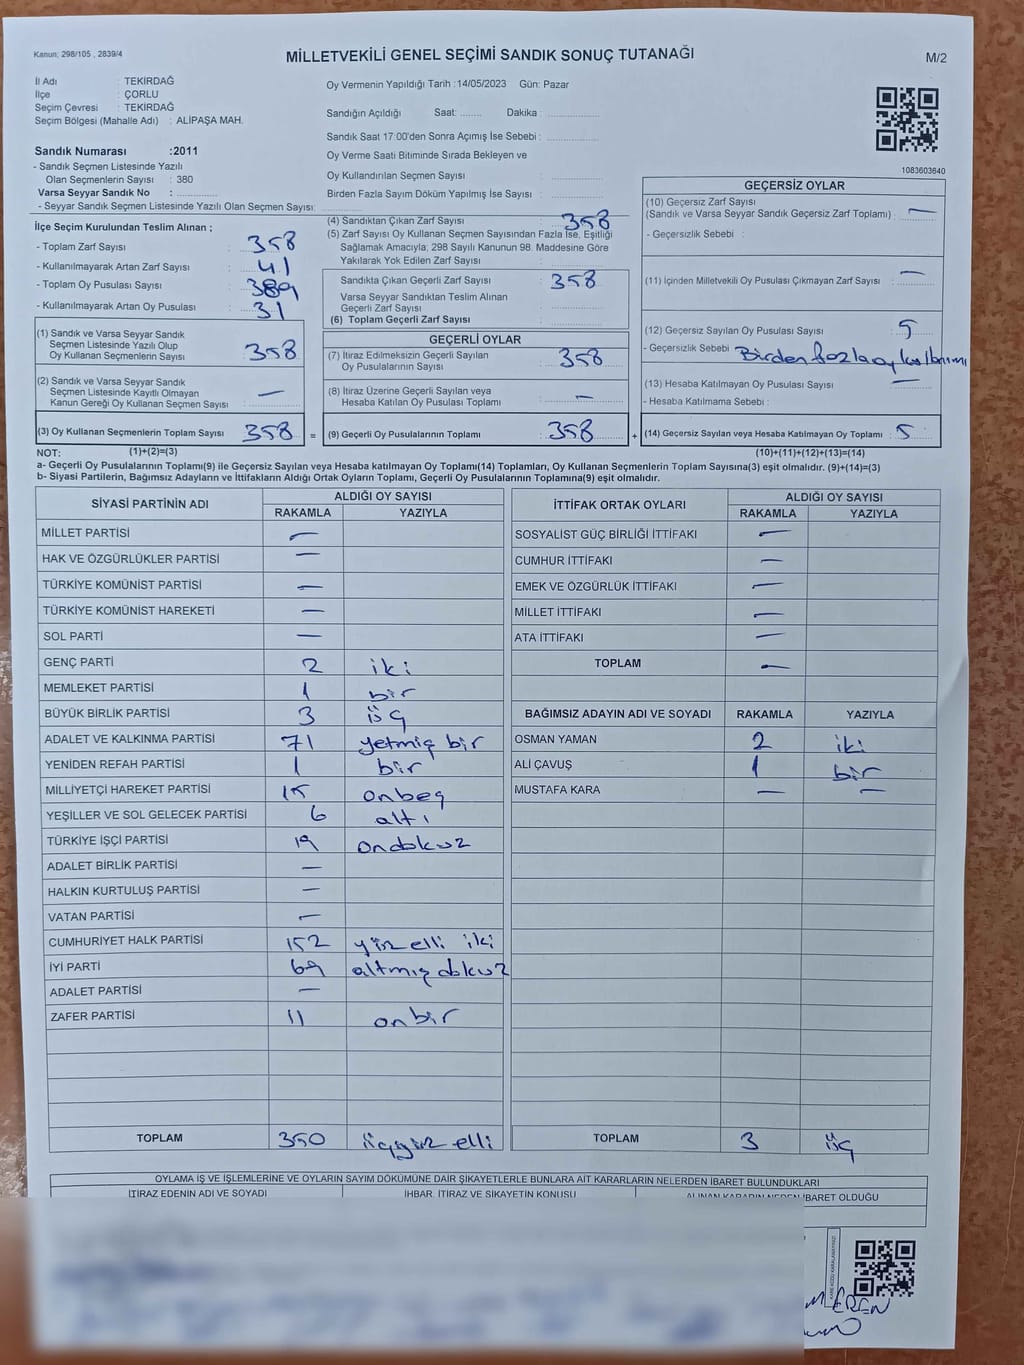 Kanun; 298/105 , 2839/4
MİLLETVEKİLİ GENEL SEÇİMİ SANDIK SONUÇ TUTANAĞI
M/2
İl Adı : TEKİRDAĞ
İlçe : ÇORLU
Seçim Çevresi : TEKİRDAĞ
Seçim Bölgesi (Mahalle Adı) : ALİPAŞA MAH.
Sandık Numarası :2011
- Sandık Seçmen Listesinde Yazılı
Olan Seçmenlerin Sayısı : 380
Varsa Seyyar Sandık No :
- Seyyar Sandık Seçmen Listesinde Yazılı Olan Seçmen Sayısı:
Oy Vermenin Yapıldığı Tarih :14/05/2023 Gün: Pazar
Sandığın Açıldığı Saat: Dakika :
Sandık Saat 17:00'den Sonra Açımış İse Sebebi :
Oy Verme Saati Bitiminde Sırada Bekleyen ve
Oy Kullandırılan Seçmen Sayısı :
Birden Fazla Sayım Döküm Yapılmış İse Sayısı :
1083603640
İlçe Seçim Kurulundan Teslim Alınan ;
- Toplam Zarf Sayısı : 358
- Kullanılmayarak Artan Zarf Sayısı : 41
- Toplam Oy Pusulası Sayısı : 389
- Kullanılmayarak Artan Oy Pusulası : 31
(1) Sandık ve Varsa Seyyar Sandık
Seçmen Listesinde Yazılı Olup
Oy Kullanan Seçmenlerin Sayısı : 358
(2) Sandık ve Varsa Seyyar Sandık
Seçmen Listesinde Kayıtlı Olmayan
Kanun Gereği Oy Kullanan Seçmen Sayısı : —
(3) Oy Kullanan Seçmenlerin Toplam Sayısı 358
(4) Sandıktan Çıkan Zarf Sayısı : 358
(5) Zarf Sayısı Oy Kullanan Seçmen Sayısından Fazla İse, Eşitliği
Sağlamak Amacıyla; 298 Sayılı Kanunun 98. Maddesine Göre
Yakılarak Yok Edilen Zarf Sayısı :
Sandıkta Çıkan Geçerli Zarf Sayısı : 358
Varsa Seyyar Sandıktan Teslim Alınan
Geçerli Zarf Sayısı :
(6) Toplam Geçerli Zarf Sayısı :
GEÇERLİ OYLAR
(7) İtiraz Edilmeksizin Geçerli Sayılan
Oy Pusulalarının Sayısı : 358
(8) İtiraz Üzerine Geçerli Sayılan veya
Hesaba Katılan Oy Pusulası Toplamı : —
= (9) Geçerli Oy Pusulalarının Toplamı : 358
GEÇERSİZ OYLAR
(10) Geçersiz Zarf Sayısı
(Sandık ve Varsa Seyyar Sandık Geçersiz Zarf Toplamı) : —
- Geçersizlik Sebebi :
(11) İçinden Milletvekili Oy Pusulası Çıkmayan Zarf Sayısı : —
(12) Geçersiz Sayılan Oy Pusulası Sayısı : 5
- Geçersizlik Sebebi : Birden fazla oy kullanımı
(13) Hesaba Katılmayan Oy Pusulası Sayısı : —
- Hesaba Katılmama Sebebi :
+ (14) Geçersiz Sayılan veya Hesaba Katılmayan Oy Toplamı : 5
NOT: (1)+(2)=(3) (10)+(11)+(12)+(13)=(14)
a- Geçerli Oy Pusulalarının Toplamı(9) ile Geçersiz Sayılan veya Hesaba katılmayan Oy Toplamı(14) Toplamları, Oy Kullanan Seçmenlerin Toplam Sayısına(3) eşit olmalıdır. (9)+(14)=(3)
b- Siyasi Partilerin, Bağımsız Adayların ve İttifakların Aldığı Ortak Oyların Toplamı, Geçerli Oy Pusulalarının Toplamına(9) eşit olmalıdır.
SİYASİ PARTİNİN ADI ALDIĞI OY SAYISI
RAKAMLA YAZIYLA
MİLLET PARTİSİ —
HAK VE ÖZGÜRLÜKLER PARTİSİ —
TÜRKİYE KOMÜNİST PARTİSİ —
TÜRKİYE KOMÜNİST HAREKETİ —
SOL PARTİ —
GENÇ PARTİ 2 iki
MEMLEKET PARTİSİ 1 bir
BÜYÜK BİRLİK PARTİSİ 3 üç
ADALET VE KALKINMA PARTİSİ 71 yetmiş bir
YENİDEN REFAH PARTİSİ 1 bir
MİLLİYETÇİ HAREKET PARTİSİ 15 onbeş
YEŞİLLER VE SOL GELECEK PARTİSİ 6 altı
TÜRKİYE İŞÇİ PARTİSİ 19 ondokuz
ADALET BİRLİK PARTİSİ —
HALKIN KURTULUŞ PARTİSİ —
VATAN PARTİSİ —
CUMHURİYET HALK PARTİSİ 152 yüz elli iki
İYİ PARTİ 69 altmış dokuz
ADALET PARTİSİ —
ZAFER PARTİSİ 11 onbir
TOPLAM 350 üçyüz elli
İTTİFAK ORTAK OYLARI ALDIĞI OY SAYISI
RAKAMLA YAZIYLA
SOSYALİST GÜÇ BİRLİĞİ İTTİFAKI —
CUMHUR İTTİFAKI —
EMEK VE ÖZGÜRLÜK İTTİFAKI —
MİLLET İTTİFAKI —
ATA İTTİFAKI —
TOPLAM —
BAĞIMSIZ ADAYIN ADI VE SOYADI RAKAMLA YAZIYLA
OSMAN YAMAN 2 iki
ALİ ÇAVUŞ 1 bir
MUSTAFA KARA — —
TOPLAM 3 üç
OYLAMA İŞ VE İŞLEMLERİNE VE OYLARIN SAYIM DÖKÜMÜNE DAİR ŞİKAYETLERLE BUNLARA AİT KARARLARIN NELERDEN İBARET BULUNDUKLARI
İTİRAZ EDENİN ADI VE SOYADI İHBAR, İTİRAZ VE ŞİKAYETİN KONUSU ALINAN KARARIN NEDEN İBARET OLDUĞU
EREN